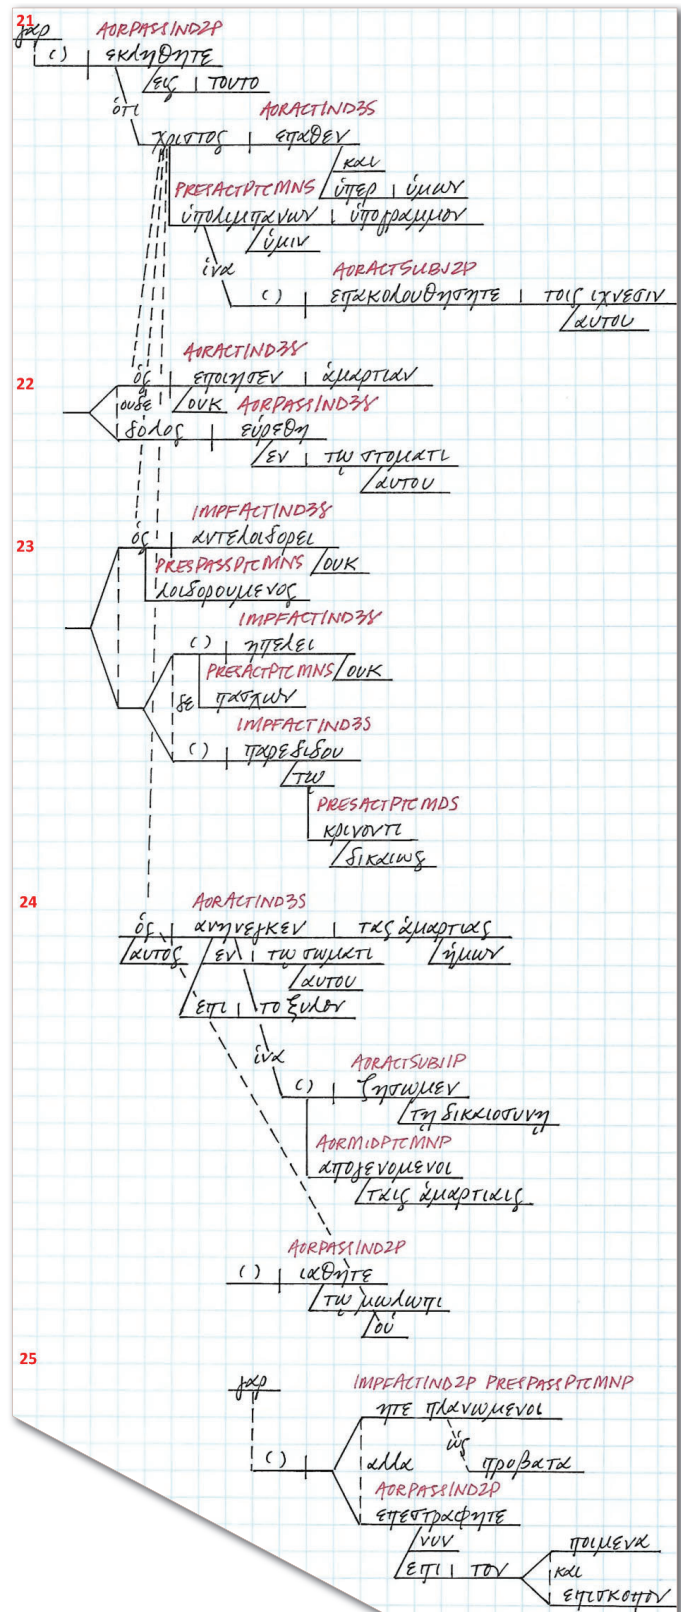 21
γαρ
AORPASSIND2P
( ) εκληθητε
εις τουτο
ὁτι
AORACTIND3S
χριστος επαθεν
και
PRESACTPTCMNS
ὑπερ ὑμων
ὑπολιμπανων ὑπογραμμον
ὑμιν
ἱνα
AORACTSUBJ2P
( ) επακολουθησητε τοις ιχνεσιν
αυτου
AORACTIND3S
22
ὁς εποιησεν ἁμαρτιαν
ουδε
ουκ
AORPASSIND3S
δολος εὑρεθη
εν τῳ στοματι
αυτου
IMPFACTIND3S
23
ὁς αντελοιδορει
PRESPASSPTCMNS
ουκ
λοιδορουμενος
IMPFACTIND3S
( ) ηπειλει
PRESACTPTCMNS
ουκ
δε
πασχων
IMPFACTIND3S
( ) παρεδιδου
τῳ
PRESACTPTCMDS
κρινοντι
δικαιως
24
AORACTIND3S
ὁς ανηνεγκεν τας ἁμαρτιας
αυτος
εν τῳ σωματι
ἡμων
αυτου
επι το ξυλον
ἱνα
AORACTSUBJ1P
( ) ζησωμεν
τῃ δικαιοσυνῃ
AORMIDPTCMNP
απογενομενοι
ταις ἁμαρτιαις
AORPASSIND2P
( ) ιαθητε
τῳ μωλωπι
οὑ
25
γαρ
IMPFACTIND2P PRESPASSPTCMNP
ητε πλανωμενοι
ὡς
( )
αλλα
προβατα
AORPASSIND2P
επεστραφητε
νυν
ποιμενα
επι τον
και
επισκοπον